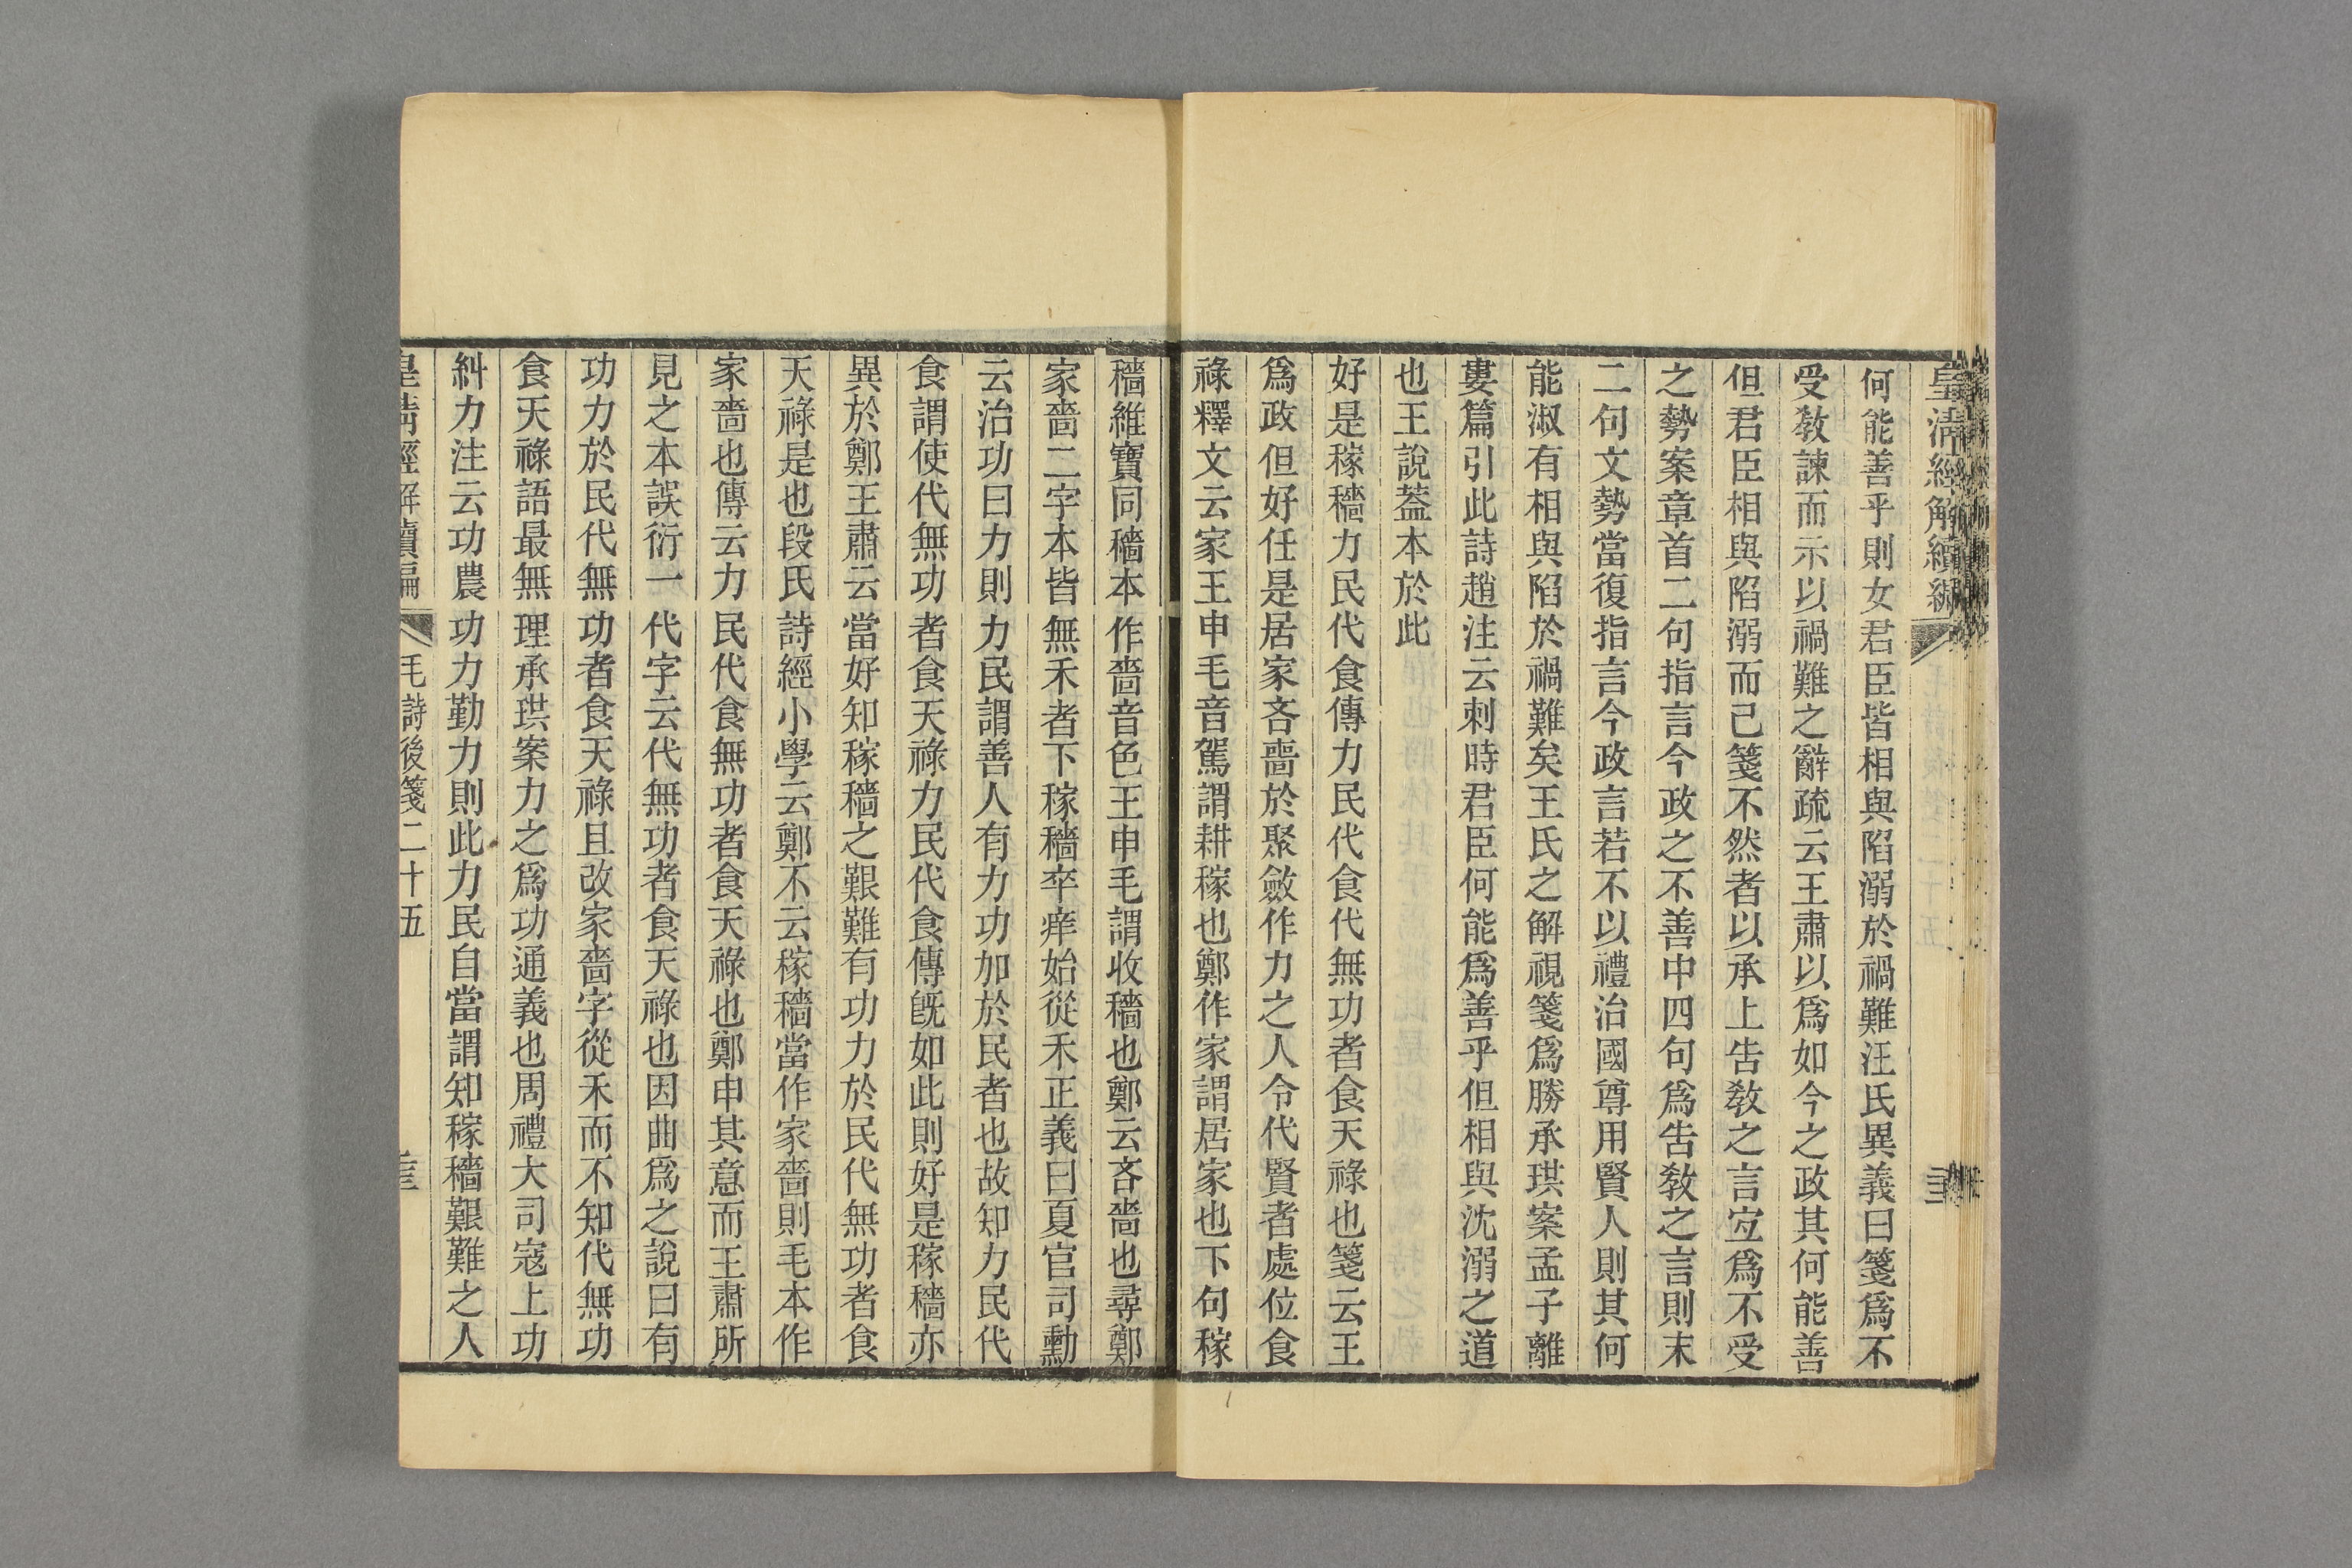 皇清經解續編
何能善乎則女君臣皆相與陷溺於禍難汪氏異義曰箋爲不
受敎諫而示以禍難之辭疏云王肅以爲如今之政其何能善
但君臣相與陷溺而已箋不然者以承上吿敎之言宐爲不受
之勢案章首二句指言今政之不善中四句爲吿敎之言則末
二句文勢當復指言今政言若不以禮治國尊用賢人則其何
能淑有相與陷於禍難矣王氏之解視箋爲勝承珙案孟子離
婁篇引此詩趙注云刺時君臣何能爲善乎但相與沈溺之道
也王說葢本於此
好是稼穡力民代食傳力民代食代無功者食天祿也箋云王
爲政但好任是居家吝嗇於聚斂作力之人令代賢者處位食
祿釋文云家王申毛音駕謂耕稼也鄭作家謂居家也下句稼
穡維寶同穡本作嗇音色王申毛謂收穡也鄭云吝嗇也尋鄭
家嗇二字本皆無禾者下稼穡卒痒始從禾正義曰夏官司勳
云治功曰力則力民謂善人有力功加於民者也故知力民代
食謂使代無功者食天祿力民代食傳旣如此則好是稼穡亦
異於鄭王肅云當好知稼穡之艱難有功力於民代無功者食
天祿是也段氏詩經小學云鄭不云稼穡當作家嗇則毛本作
家嗇也傳云力民代食無功者食天祿也鄭申其意而王肅所
見之本誤衍一代字云代無功者食天祿也因曲爲之說曰有
功力於民代無功者食天祿且改家嗇字從禾而不知代無功
食天祿語最無理承珙案力之爲功通義也周禮大司寇上功
糾力注云功農功力勤力則此力民自當謂知稼穡艱難之人
皇淸經解續編
毛詩後箋二十五